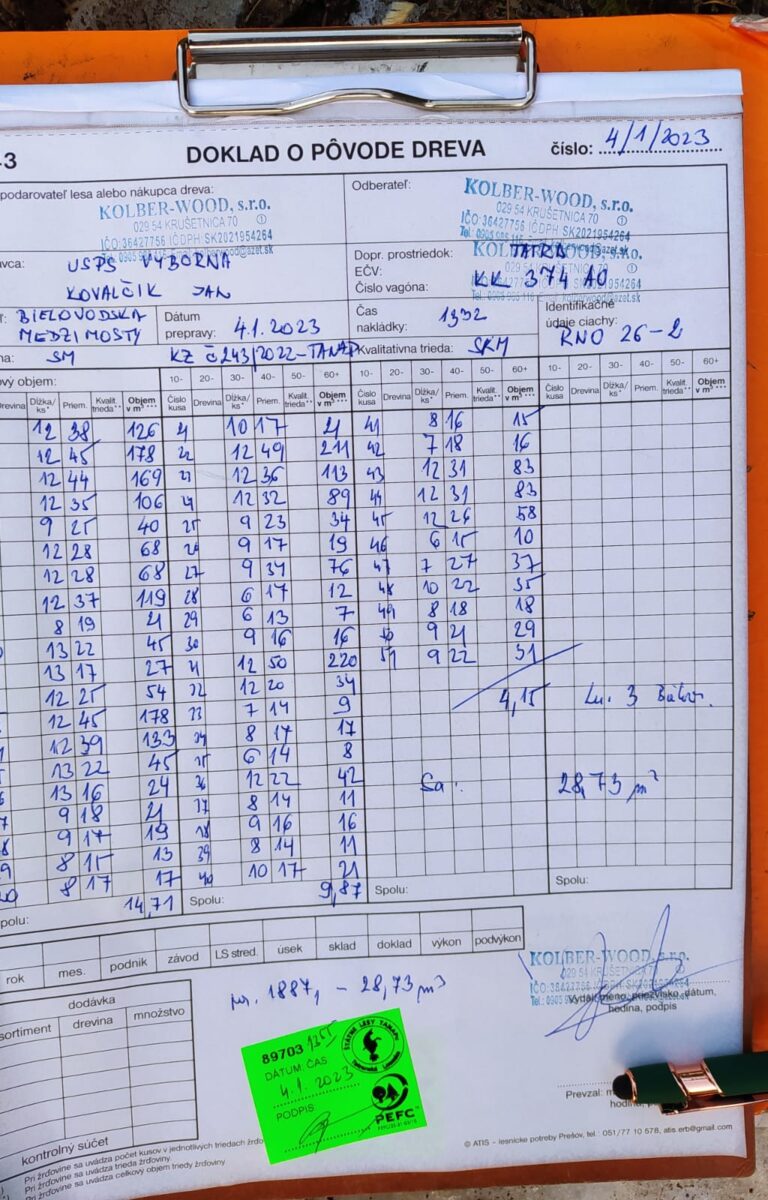 -3
DOKLAD O PÔVODE DREVA
číslo: 4/1/2023
podarovateľ lesa alebo nákupca dreva:
KOLBER-WOOD, s.r.o.
029 54 KRUŠETNICA 70
IČO:36427756 IČDPH SK2021954264
Odberateľ:
KOLBER-WOOD, s.r.o.
029 54 KRUŠETNICA 70
IČO:36427756 IČDPH SK2021954264
vca: USPS VÝBORNA
KOVALČIK JAN
Dopr. prostriedok: TATRA
EČV: KK 374 AO
Číslo vagóna:
BIELOVODSKA
MEDZIMOSTY
Dátum
prepravy: 4.1.2023
Čas
nakládky: 1332
Identifikačné
údaje ciachy:
RNO 26-2
na: SM KZ č 243/2022-TANAP Kvalitatívna trieda: SKM
ový objem: 10- 20- 30- 40- 50- 60+ 10- 20- 30- 40- 50- 60+ 10- 20- 30- 40- 50- 60+
Drevina Dĺžka/ks* Priem. Kvalit. trieda** Objem v m³*** Číslo kusa Drevina Dĺžka/ks* Priem. Kvalit. trieda** Objem v m³*** Číslo kusa Drevina Dĺžka/ks* Priem. Kvalit. trieda** Objem v m³*** Číslo kusa Drevina Dĺžka/ks* Priem. Kvalit. trieda** Objem v m³***
12 38 126 21 10 17 21 41 8 16 15
12 45 178 22 12 49 211 42 7 18 16
12 44 169 23 12 36 113 43 12 31 83
12 35 106 24 12 32 89 44 12 31 83
9 25 40 25 9 23 34 45 12 26 58
12 28 68 26 9 17 19 46 6 15 10
12 28 68 27 9 34 76 47 7 27 37
12 37 119 28 6 17 12 48 10 22 35
8 19 21 29 6 13 7 49 8 18 18
13 22 45 30 9 16 16 50 9 21 29
13 17 27 31 12 50 220 51 9 22 31
12 25 54 32 12 20 34 4,15
12 45 178 33 7 14 9
12 39 133 34 8 17 17
13 22 45 35 6 14 8
13 16 24 36 12 22 42 Sa: 28,73 m³
9 18 21 37 8 14 11
9 17 19 38 9 16 16
8 15 13 39 8 14 11
8 17 17 40 10 17 21
polu: 14,71 Spolu: 9,87 Spolu: Spolu:
rok mes. podnik závod LS stred. úsek sklad doklad výkon podvýkon
dodávka
sortiment drevina množstvo
kontrolný súčet
1887, - 28,73 m³
KOLBER-WOOD, s.r.o.
029 54 KRUŠETNICA 70
Vydal: meno, priezvisko, dátum,
hodina, podpis
89703 1355
DÁTUM, ČAS
4.1.2023
PODPIS
ŠTÁTNE LESY TANAPU
PEFC
Prevzal:
© ATIS - lesnícke potreby Prešov, tel.: 051/77 10 578, atis.erb@gmail.com
Pri žrďovine sa uvádza počet kusov v jednotlivých triedach žrďo
Pri žrďovine sa uvádza trieda žrďoviny
Pri žrďovine sa uvádza celkový objem triedy žrďoviny